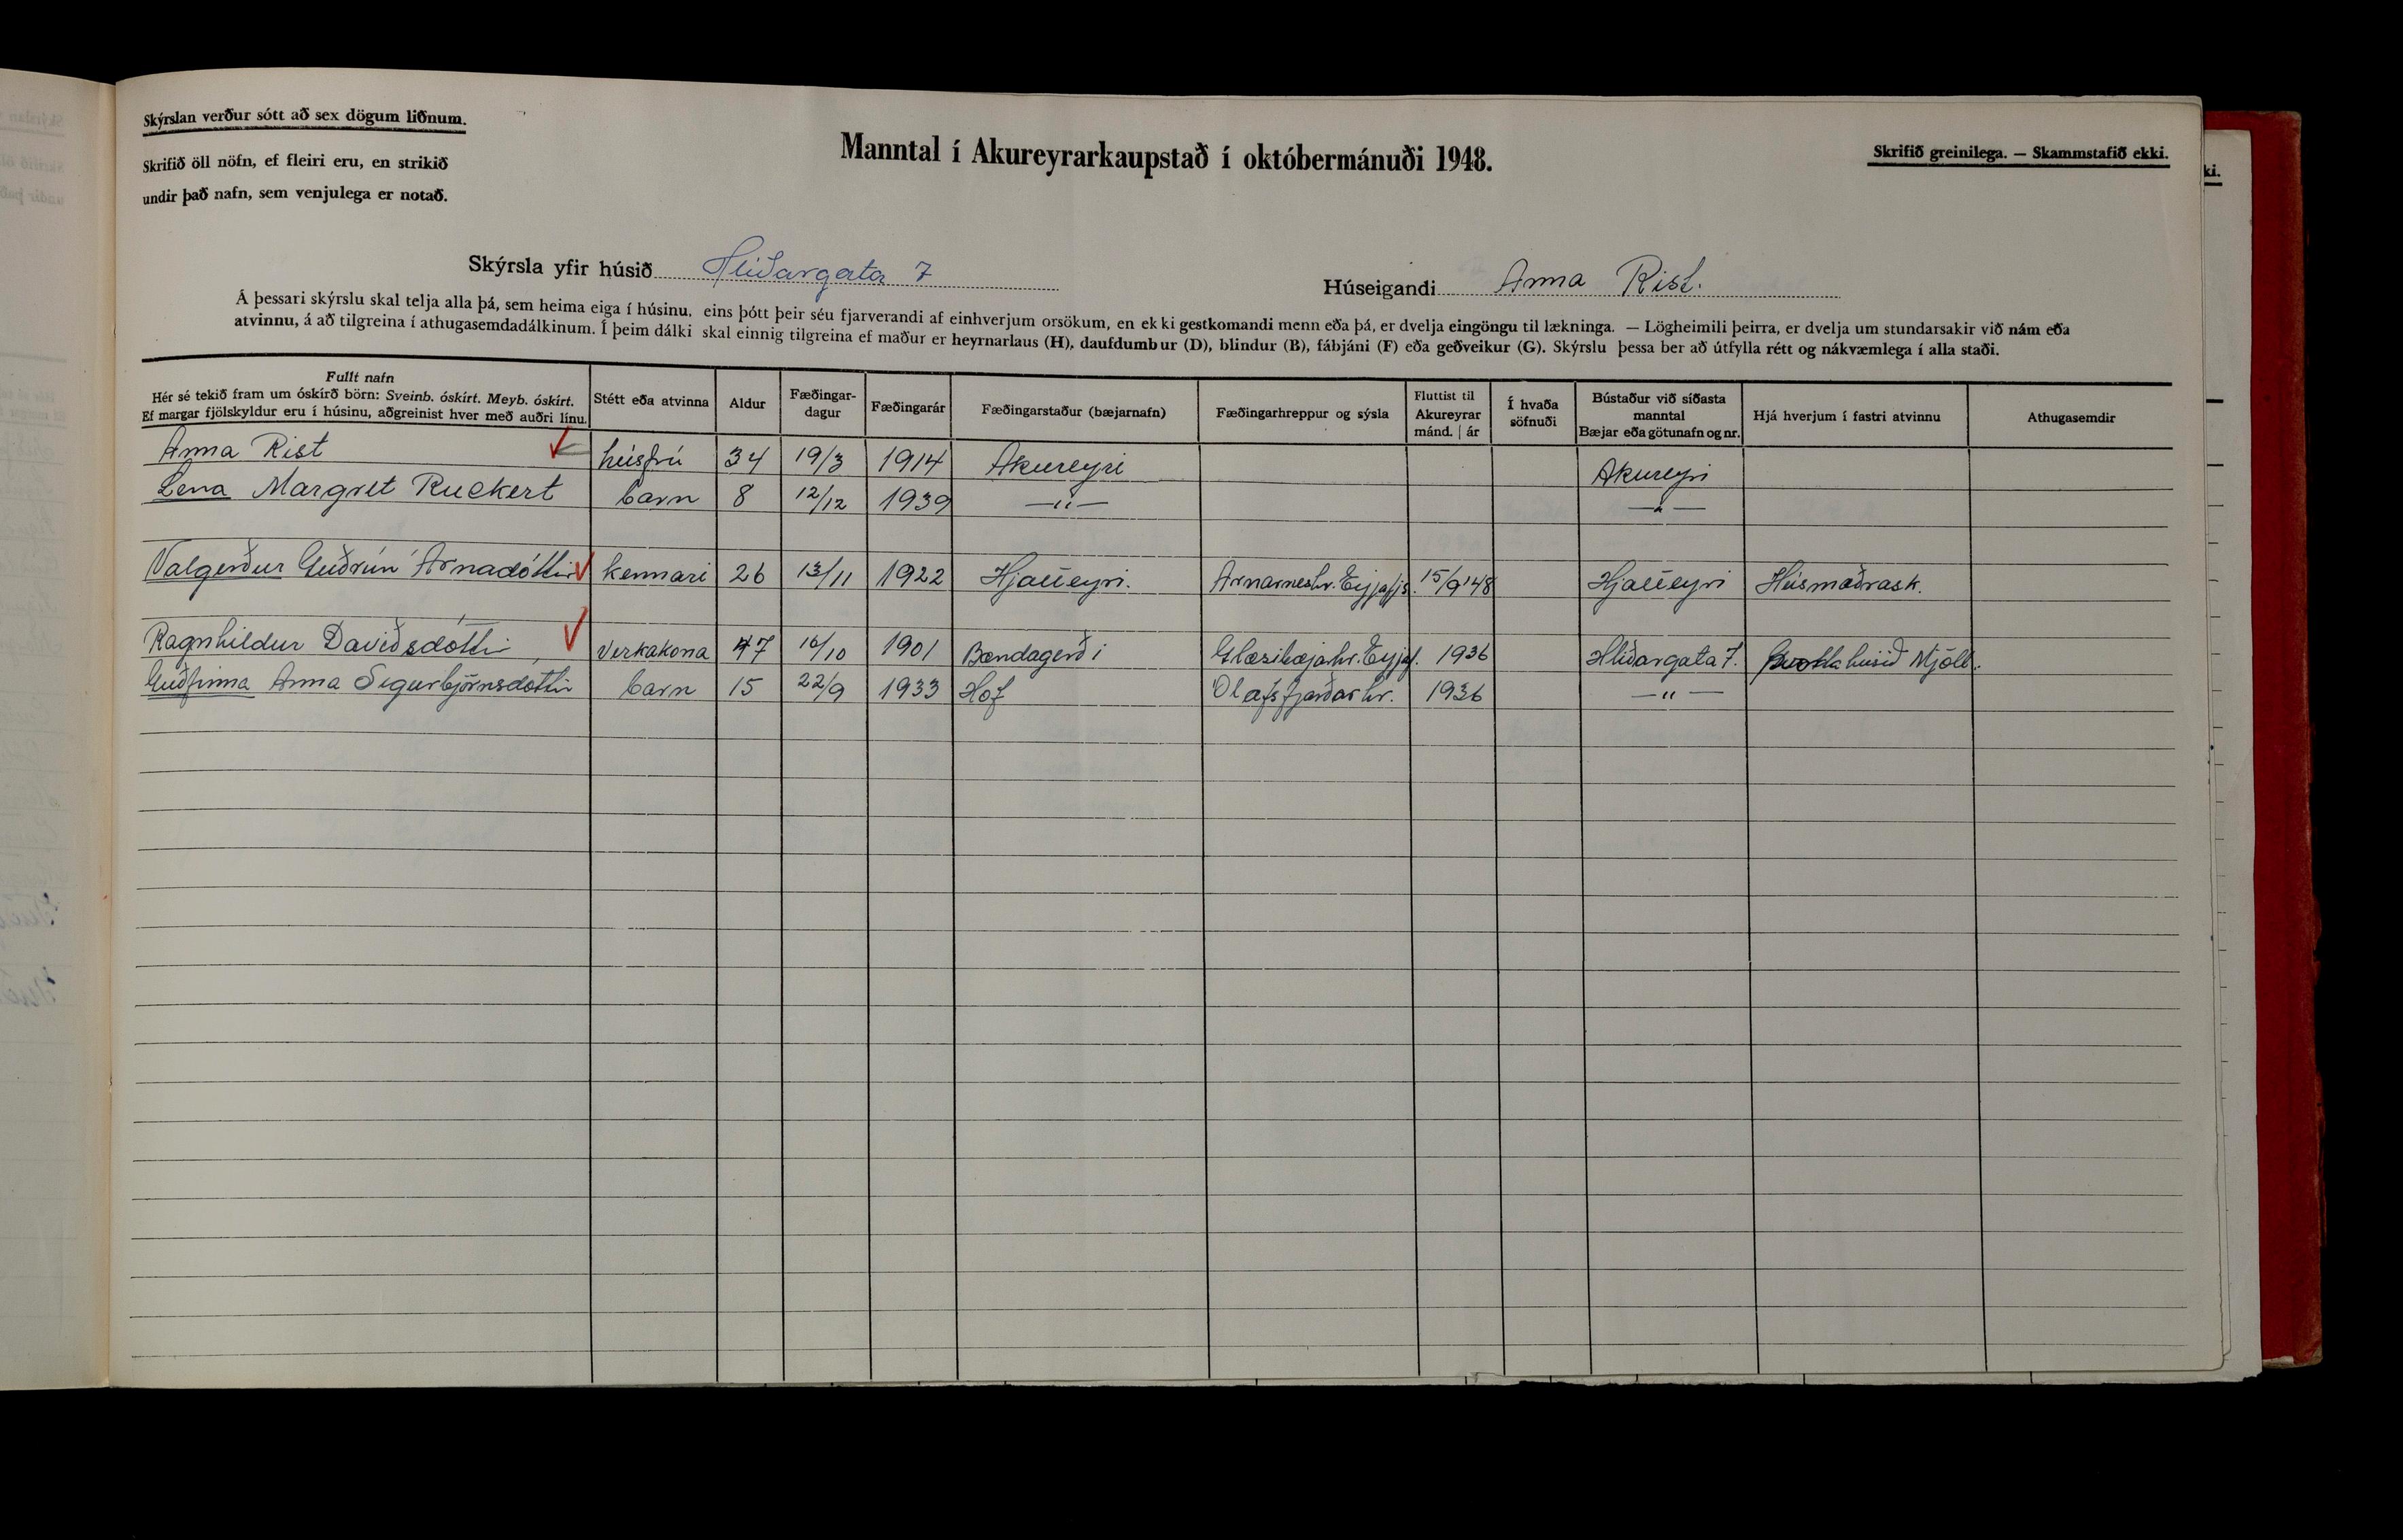 Skýrslan verður sótt að sex dögum liðnum.
Skrifið öll nöfn, ef fleiri eru, en strikið
undir það nafn, sem venjulega er notað.
Manntal í Akureyrarkaupstað í októbermánuði 1948.
Skrifið greinilega. — Skammstafið ekki.
Skýrsla yfir húsið Hlíðargata 7
Húseigandi Anna Rist.
Á þessari skýrslu skal telja alla þá, sem heima eiga í húsinu, eins þótt þeir séu fjarverandi af einhverjum orsökum, en ekki gestkomandi menn eða þá, er dvelja eingöngu til lækninga. — Lögheimili þeirra, er dvelja um stundarsakir við nám eða
atvinnu, á að tilgreina í athugasemdadálkinum. Í þeim dálki skal einnig tilgreina ef maður er heyrnarlaus (H), daufdumbur (D), blindur (B), fábjáni (F) eða geðveikur (G). Skýrslu þessa ber að útfylla rétt og nákvæmlega í alla staði.
Fullt nafn
Hér sé tekið fram um óskírð börn: Sveinb. óskírt. Meyb. óskírt.
Ef margar fjölskyldur eru í húsinu, aðgreinist hver með auðri línu.
Stétt eða atvinna
Aldur
Fæðingar-
dagur
Fæðingarár
Fæðingarstaður (bæjarnafn)
Fæðingarhreppur og sýsla
Fluttist til
Akureyrar
mánd. | ár
Í hvaða
söfnuði
Bústaður við síðasta
manntal
Bæjar eða götunafn og nr.
Hjá hverjum í fastri atvinnu
Athugasemdir
Anna Rist húsfrú 34 19/3 1914 Akureyri Akureyri
Lena Margret Ruckert barn 8 12/12 1939 —"— —"—
Valgerður Guðrún Árnadóttir kennari 26 13/11 1922 Hjalteyri. Arnarneshr. Eyjafjs. 15/9 '48 Hjalteyri Húsmæðrask.
Ragnhildur Davíðsdóttir verkakona 47 16/10 1901 Bændagerði Glæsibæjahr. Eyjaf. 1936 Hlíðargata 7. Þvottahúsið Mjöll.
Guðfinna Anna Sigurbjörnsdóttir barn 15 22/9 1933 Hof Ólafsfjarðarhr. 1936 —"—
ki.